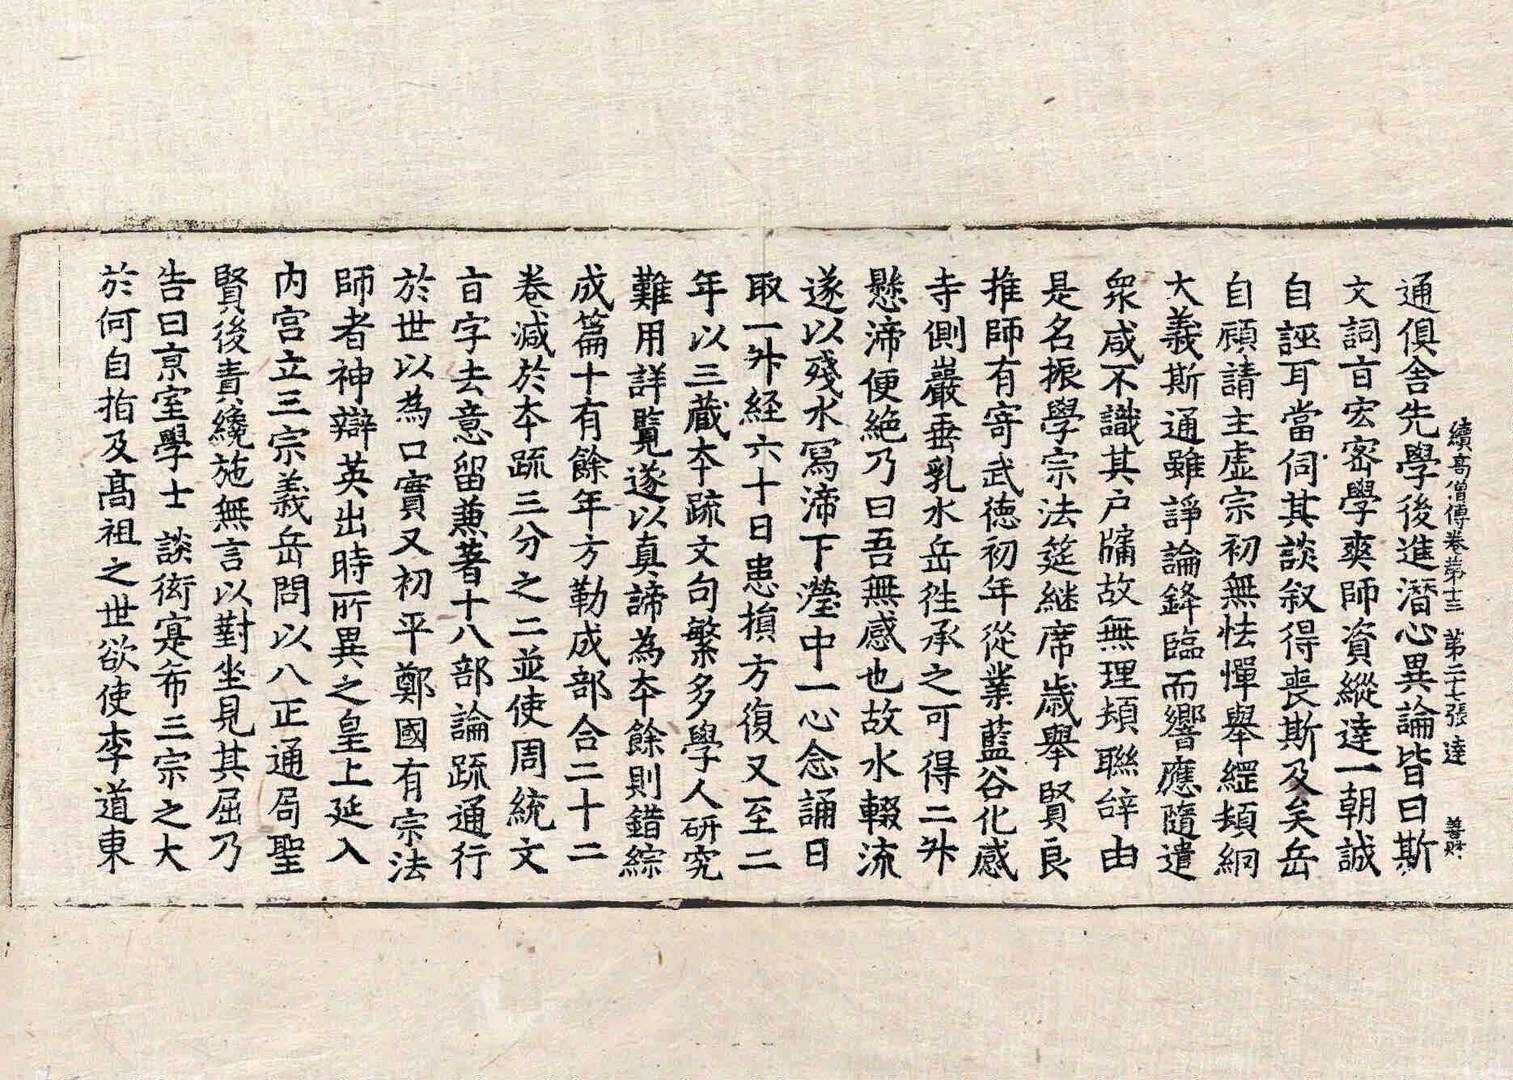 續高僧傳卷第十三　第二十七張　達　善財
通俱舍先學後進潛心異論皆曰斯
文詞旨宏密學爽師資縱達一朝誠
自誣耳當伺其談叙得喪斯及矣岳
自顧請主虛宗初無怯憚舉綱頻絅
大義斯通雖諍論鋒臨而響應隨遣
衆咸不識其戶牖故無理頻聯辞由
是名振學宗法筵継席歲舉賢良
推師有寄武徳初年從業藍谷化感
寺側巖垂乳水岳徃承之可得二升
懸渧便絶乃曰吾無感也故水輟流
遂以殘水寫渧下瀅中一心念誦日
取一升経六十日患損方復又至二
年以三藏夲疏文句繁多學人研究
難用詳覽遂以真諦為夲餘則錯綜
成篇十有餘年方勒成部合二十二
卷減於夲疏三分之二並使周統文
旨字去意留兼著十八部論疏通行
於世以為口實又初平鄭國有宗法
師者神辯英出時所異之皇上延入
内宫立三宗義岳問以八正通局聖
賢後責纔施無言以對坐見其屈乃
告曰京室學士談術寔布三宗之大
於何自指及髙祖之世欲使李道東